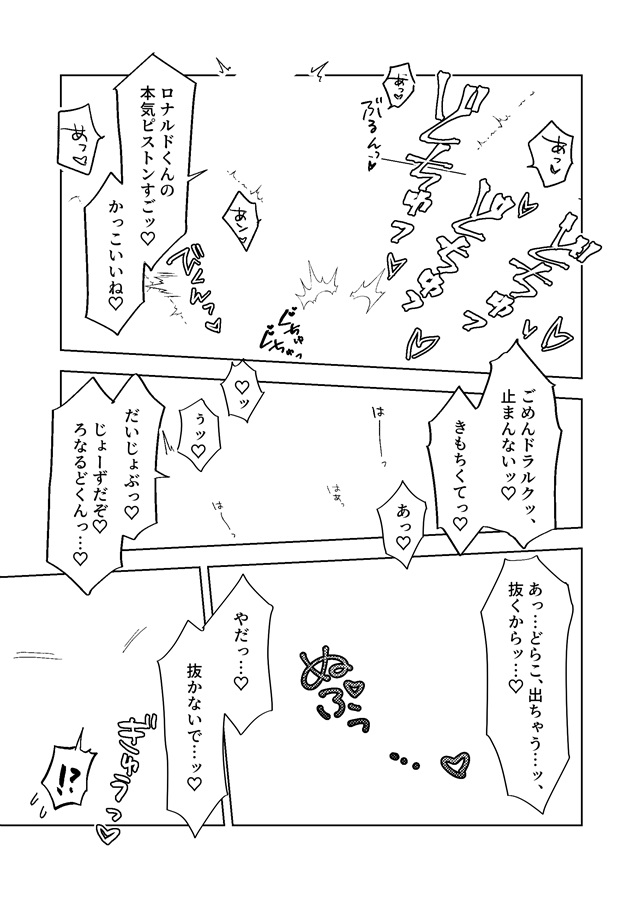 どちゅっ
どちゅっ
どちゅっ
あっ♡
あっ♡
ぶるんっ♡
ロナルドくんの
本気ピストンすごッ♡
かっこいいね♡
あン♡
めっ♡
びくんっ♡
ぢゅぢゃっ
ごめんドラルクッ、
止まんないッ♡
きもちくてっ♡
あっ♡
はーっ
はぁっ
はーっ
♡ッ
うッ♡
だいじょぶっ♡
じょーずだぞ♡
ろなるどくんっ…♡
あっ…どらこ、出ちゃう…ッ、
抜くからッ…♡
ぬぷっ♡…♡
やだっ…♡
抜かないで…ッ♡
ぎゅうっ♡
!?